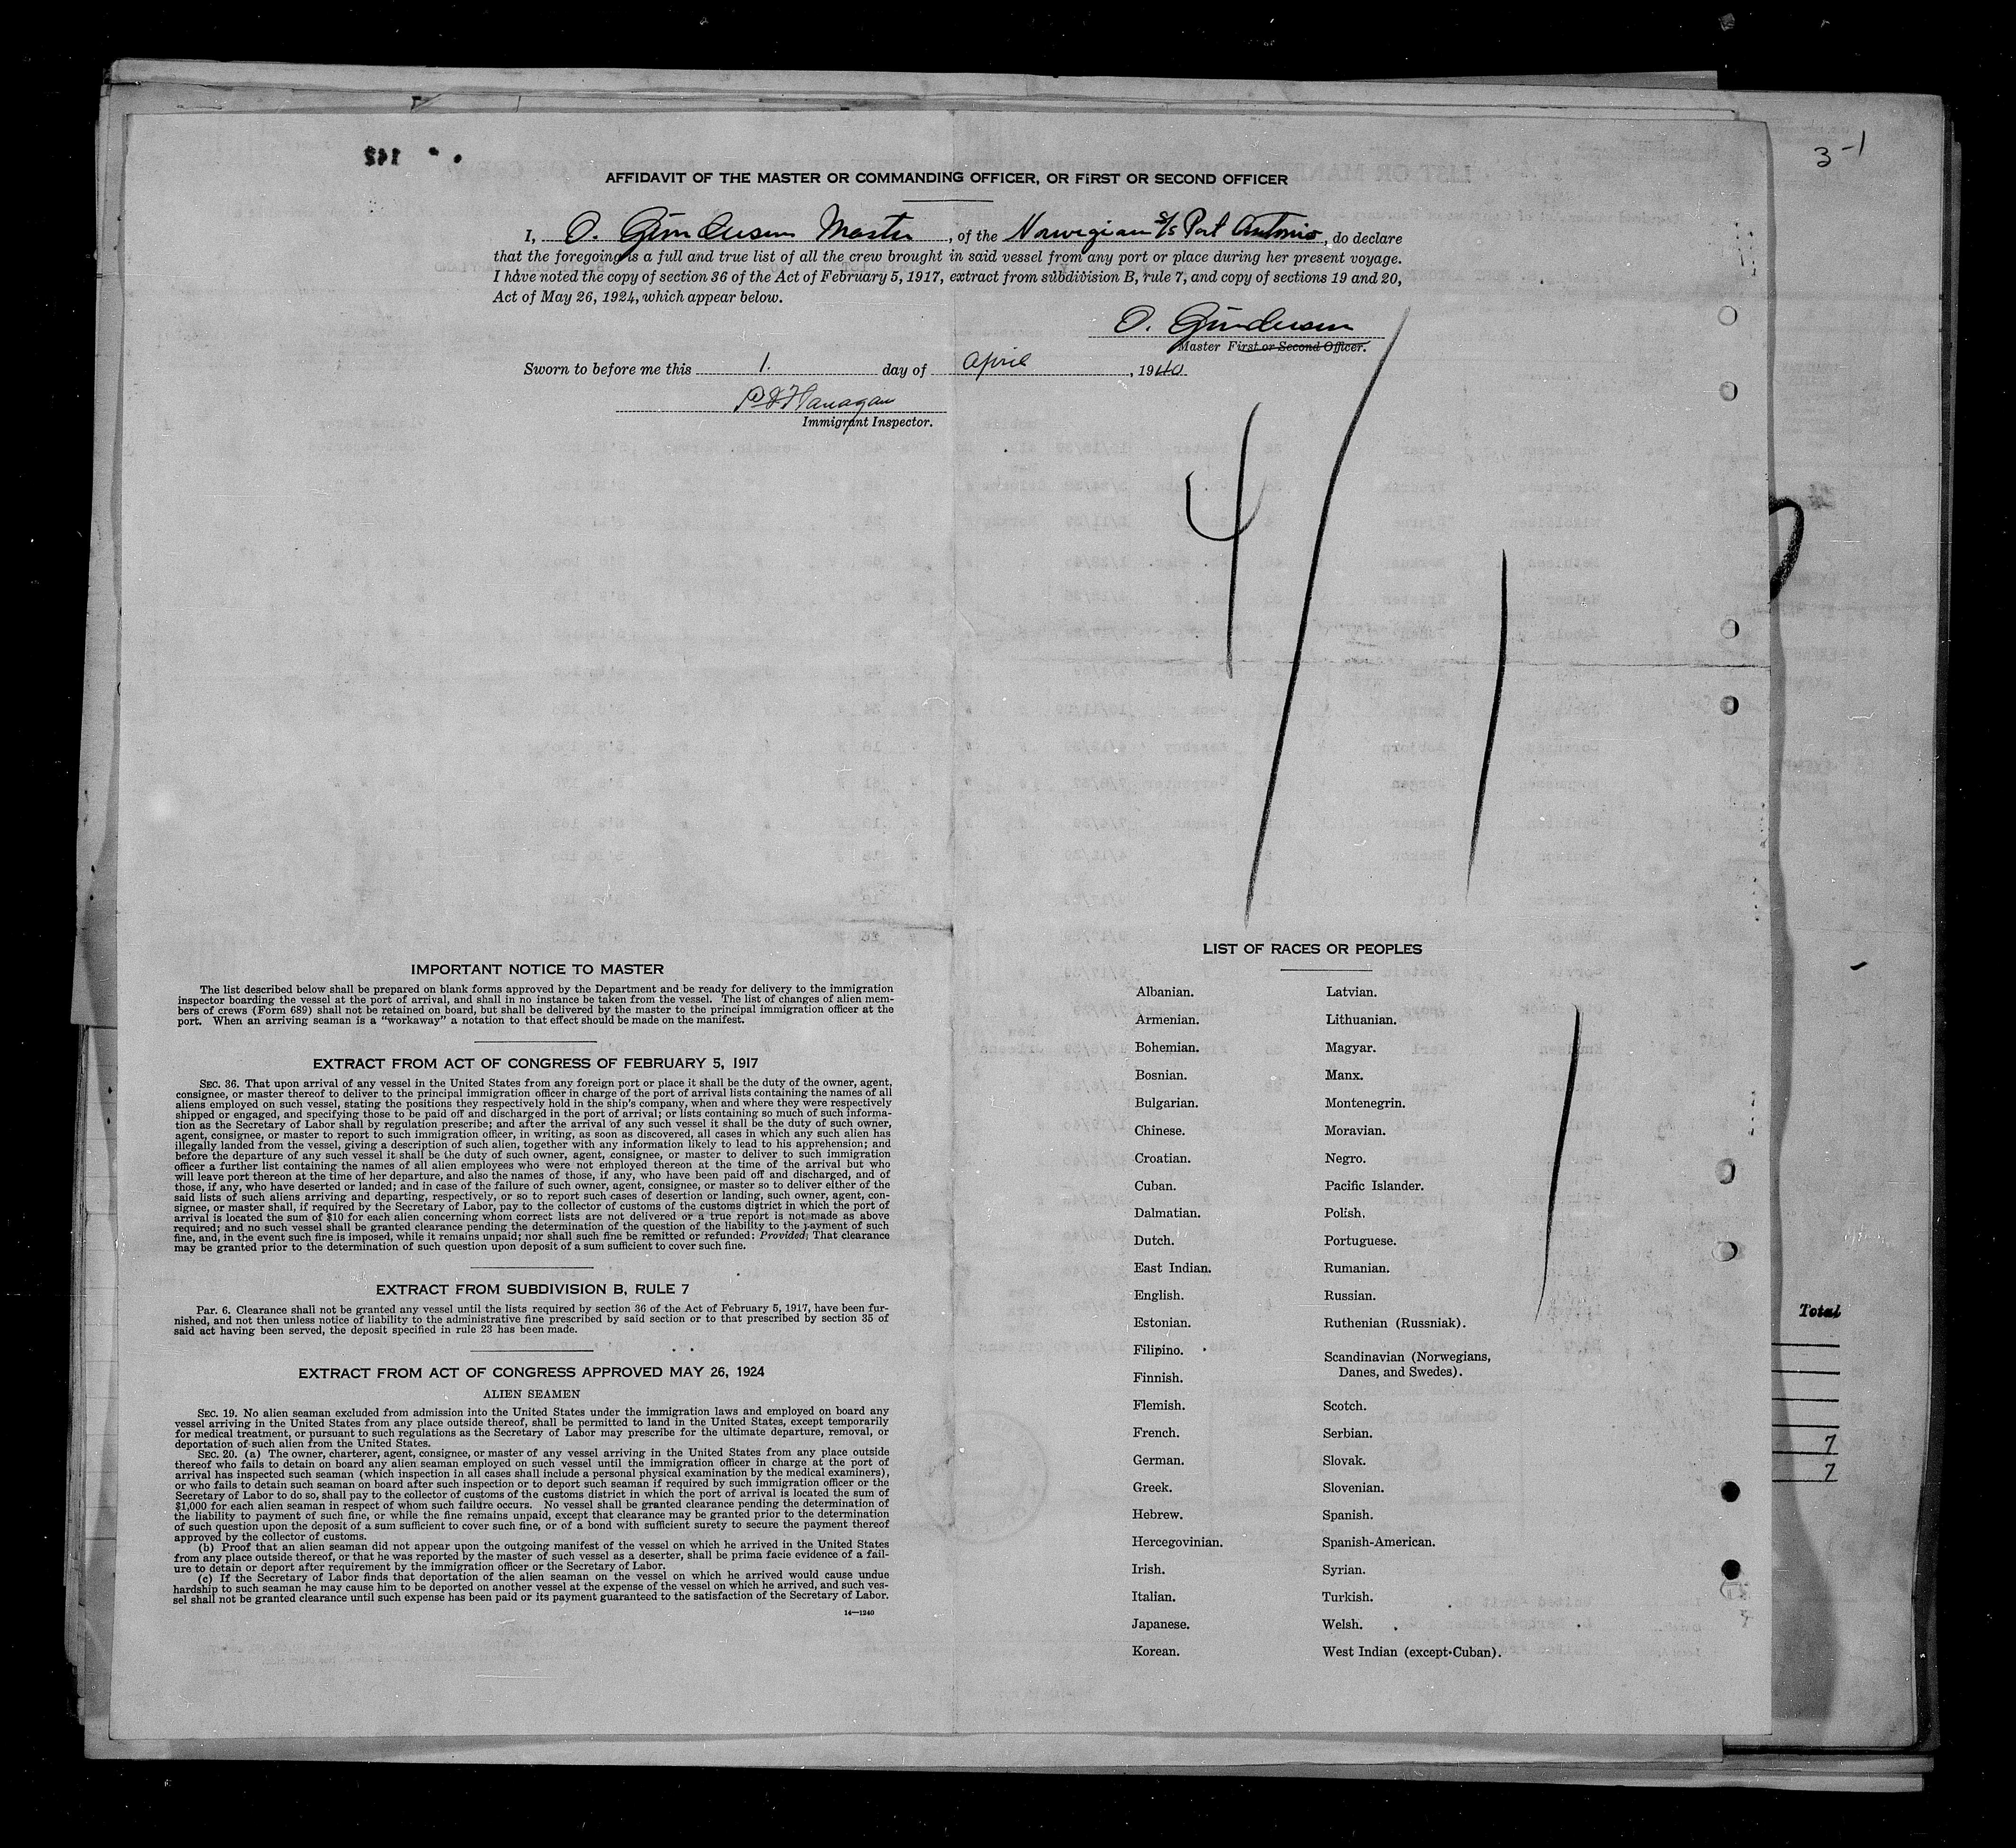 3-1
142
AFFIDAVIT OF THE MASTER OR COMMANDING OFFICER, OR FIRST OR SECOND OFFICER
I, O. Gundersen Master, of the Norwegian S/s Port Antonio, do declare
that the foregoing is a full and true list of all the crew brought in said vessel from any port or place during her present voyage.
I have noted the copy of section 36 of the Act of February 5, 1917, extract from subdivision B, rule 7, and copy of sections 19 and 20,
Act of May 26, 1924, which appear below.
O. Gundersen
Master First or Second Officer.
Sworn to before me this 1. day of April, 1940
P J Flanagan
Immigrant Inspector.
4/1
IMPORTANT NOTICE TO MASTER
The list described below shall be prepared on blank forms approved by the Department and be ready for delivery to the immigration
inspector boarding the vessel at the port of arrival, and shall in no instance be taken from the vessel. The list of changes of alien mem-
bers of crews (Form 689) shall not be retained on board, but shall be delivered by the master to the principal immigration officer at the
port. When an arriving seaman is a "workaway" a notation to that effect should be made on the manifest.
EXTRACT FROM ACT OF CONGRESS OF FEBRUARY 5, 1917
SEC. 36. That upon arrival of any vessel in the United States from any foreign port or place it shall be the duty of the owner, agent,
consignee, or master thereof to deliver to the principal immigration officer in charge of the port of arrival lists containing the names of all
aliens employed on such vessel, stating the positions they respectively hold in the ship's company, when and where they were respectively
shipped or engaged, and specifying those to be paid off and discharged in the port of arrival; or lists containing so much of such informa-
tion as the Secretary of Labor shall by regulation prescribe; and after the arrival of any such vessel it shall be the duty of such owner,
agent, consignee, or master to report to such immigration officer, in writing, as soon as discovered, all cases in which any such alien has
illegally landed from the vessel, giving a description of such alien, together with any information likely to lead to his apprehension; and
before the departure of any such vessel it shall be the duty of such owner, agent, consignee, or master to deliver to such immigration
officer a further list containing the names of all alien employees who were not employed thereon at the time of the arrival but who
will leave port thereon at the time of her departure, and also the names of those, if any, who have been paid off and discharged, and of
those, if any, who have deserted or landed; and in case of the failure of such owner, agent, consignee, or master so to deliver either of the
said lists of such aliens arriving and departing, respectively, or so to report such cases of desertion or landing, such owner, agent, con-
signee, or master shall, if required by the Secretary of Labor, pay to the collector of customs of the customs district in which the port of
arrival is located the sum of $10 for each alien concerning whom correct lists are not delivered or a true report is not made as above
required; and no such vessel shall be granted clearance pending the determination of the question of the liability to the payment of such
fine, and, in the event such fine is imposed, while it remains unpaid; nor shall such fine be remitted or refunded: Provided, That clearance
may be granted prior to the determination of such question upon deposit of a sum sufficient to cover such fine.
EXTRACT FROM SUBDIVISION B, RULE 7
Par. 6. Clearance shall not be granted any vessel until the lists required by section 36 of the Act of February 5, 1917, have been fur-
nished, and not then unless notice of liability to the administrative fine prescribed by said section or to that prescribed by section 35 of
said act having been served, the deposit specified in rule 23 has been made.
EXTRACT FROM ACT OF CONGRESS APPROVED MAY 26, 1924
ALIEN SEAMEN
SEC. 19. No alien seaman excluded from admission into the United States under the immigration laws and employed on board any
vessel arriving in the United States from any place outside thereof, shall be permitted to land in the United States, except temporarily
for medical treatment, or pursuant to such regulations as the Secretary of Labor may prescribe for the ultimate departure, removal, or
deportation of such alien from the United States.
SEC. 20. (a) The owner, charterer, agent, consignee, or master of any vessel arriving in the United States from any place outside
thereof who fails to detain on board any alien seaman employed on such vessel until the immigration officer in charge at the port of
arrival has inspected such seaman (which inspection in all cases shall include a personal physical examination by the medical examiners),
or who fails to detain such seaman on board after such inspection or to deport such seaman if required by such immigration officer or the
Secretary of Labor to do so, shall pay to the collector of customs of the customs district in which the port of arrival is located the sum of
$1,000 for each alien seaman in respect of whom such failure occurs. No vessel shall be granted clearance pending the determination of
the liability to payment of such fine, or while the fine remains unpaid, except that clearance may be granted prior to the determination
of such question upon the deposit of a sum sufficient to cover such fine, or of a bond with sufficient surety to secure the payment thereof
approved by the collector of customs.
(b) Proof that an alien seaman did not appear upon the outgoing manifest of the vessel on which he arrived in the United States
from any place outside thereof, or that he was reported by the master of such vessel as a deserter, shall be prima facie evidence of a fail-
ure to detain or deport after requirement by the immigration officer or the Secretary of Labor.
(c) If the Secretary of Labor finds that deportation of the alien seaman on the vessel on which he arrived would cause undue
hardship to such seaman he may cause him to be deported on another vessel at the expense of the vessel on which he arrived, and such ves-
sel shall not be granted clearance until such expense has been paid or its payment guaranteed to the satisfaction of the Secretary of Labor.
14—1240
LIST OF RACES OR PEOPLES
Albanian.
Armenian.
Bohemian.
Bosnian.
Bulgarian.
Chinese.
Croatian.
Cuban.
Dalmatian.
Dutch.
East Indian.
English.
Estonian.
Filipino.
Finnish.
Flemish.
French.
German.
Greek.
Hebrew.
Hercegovinian.
Irish.
Italian.
Japanese.
Korean.
Latvian.
Lithuanian.
Magyar.
Manx.
Montenegrin.
Moravian.
Negro.
Pacific Islander.
Polish.
Portuguese.
Rumanian.
Russian.
Ruthenian (Russniak).
Scandinavian (Norwegians,
Danes, and Swedes).
Scotch.
Serbian.
Slovak.
Slovenian.
Spanish.
Spanish-American.
Syrian.
Turkish.
Welsh.
West Indian (except Cuban).
Total
7
7